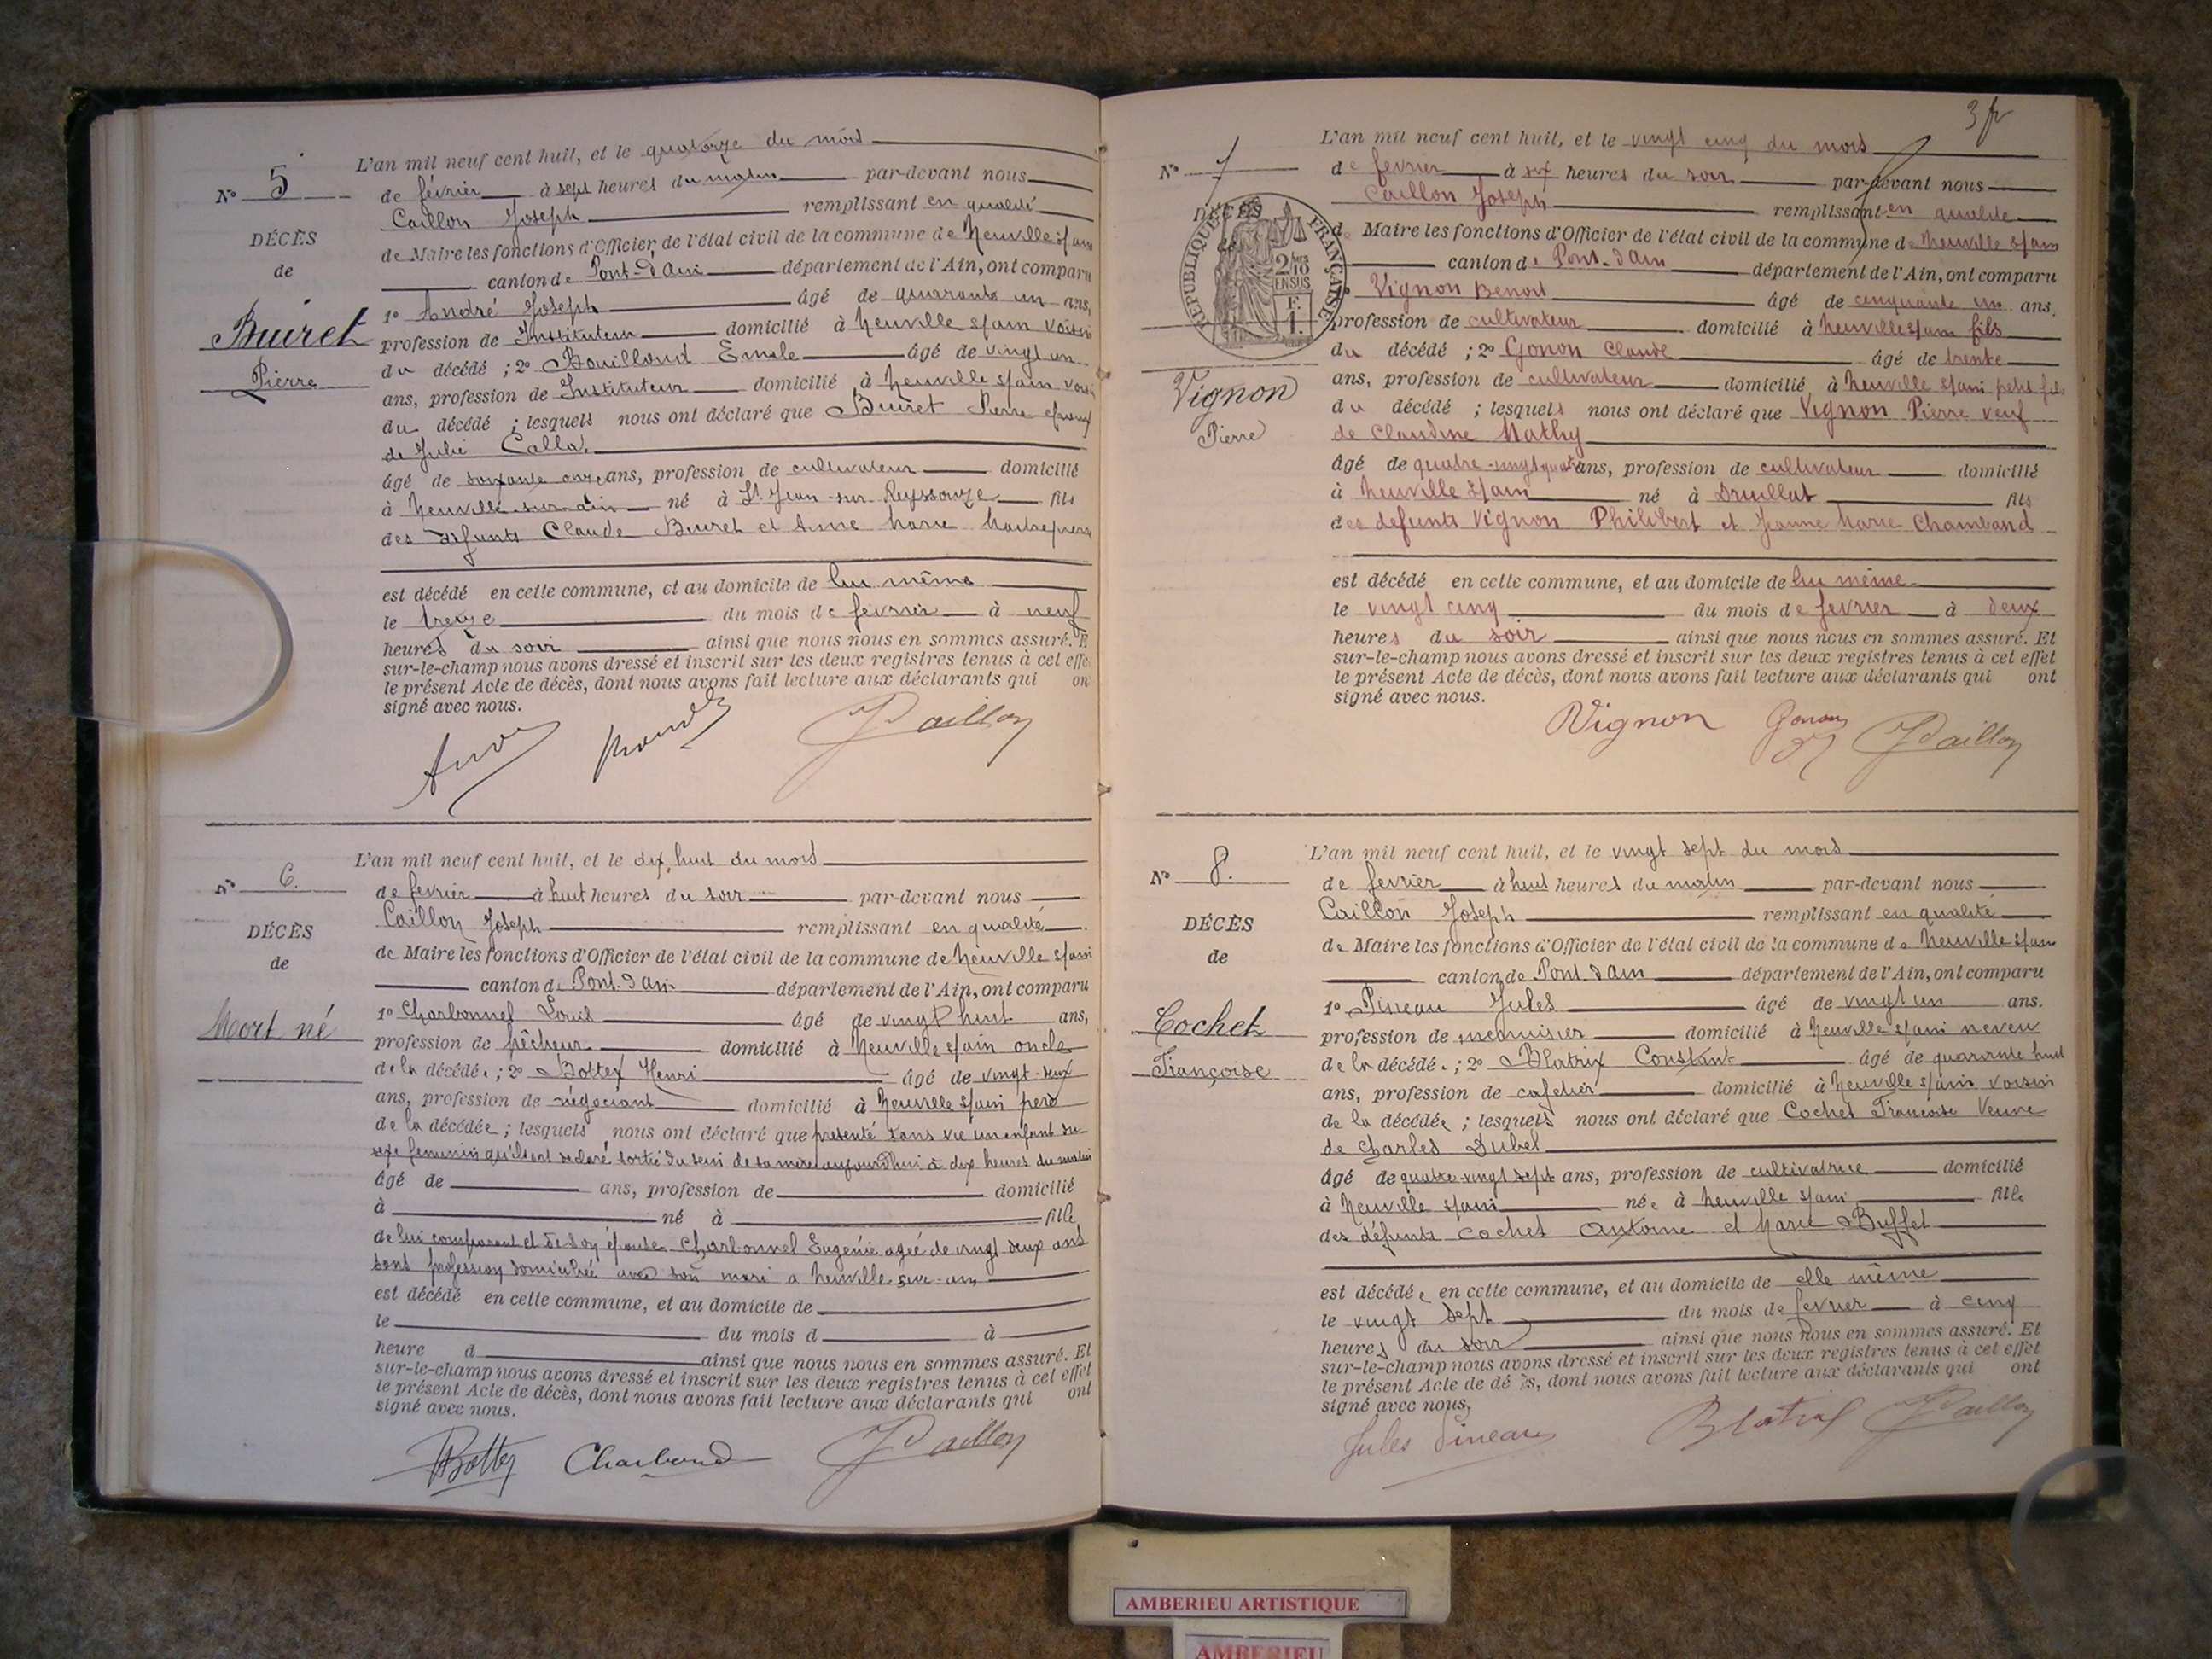 L'an mil neuf cent huit, et le quatorze du mois
N° 5
de février à sept heures du matin par-devant nous
Caillon Joseph remplissant en qualité
DÉCÈS
de Maire les fonctions d'Officier de l'état civil de la commune de Neuville s/ain
de
canton de Pont-d'Ain département de l'Ain, ont comparu
1° André Joseph âgé de quarante un ans,
Buiret
profession de Instituteur domicilié à Neuville s/ain voisin
Pierre
du décédé ; 2° Bouilloud Emile âgé de vingt un
ans, profession de Instituteur domicilié à Neuville s/ain voisin
du décédé ; lesquels nous ont déclaré que Buiret Pierre époux
de Julie Callot
âgé de soixante onze ans, profession de cultivateur domicilié
à Neuville-sur-ain né à St Jean-sur-Reyssouze fils
des défunts Claude Buiret et Anne Marie
est décédé en cette commune, et au domicile de lui même
le treize du mois de février à neuf
heures du soir ainsi que nous nous en sommes assuré. E
sur-le-champ nous avons dressé et inscrit sur les deux registres tenus à cet effe
le présent Acte de décès, dont nous avons fait lecture aux déclarants qui on
signé avec nous.
JCaillon
L'an mil neuf cent huit, et le dix huit du mois
N° 6.
de fevrier à huit heures du soir par-devant nous
Caillon Joseph remplissant en qualité
DÉCÈS
de Maire les fonctions d'Officier de l'état civil de la commune de Neuville s/ain
de
canton de Pont-d'ain département de l'Ain, ont comparu
1° Charbonnel Louis âgé de vingt huit ans,
Mort né
profession de pêcheur domicilié à Neuville s/ain oncle
de la décédé ; 2° Bottex Henri âgé de vingt-deux
ans, profession de négociant domicilié à Neuville s/ain père
de la décédée ; lesquels nous ont déclaré que présenté sans vie un enfant du
sexe feminin qu'ils ont déclaré sortie du sein de sa mère aujourd'hui à dix heures du matin
âgé de ans, profession de domicilié
à né à fille
de lui comparant et de son épouse Charbonnel Eugénie agée de vingt deux ans
sans profession domiciliée avec son mari a Neuville-sur-ain
est décédé en cette commune, et au domicile de
le du mois d à
heure d ainsi que nous nous en sommes assuré. Et
sur-le-champ nous avons dressé et inscrit sur les deux registres tenus à cet effet
le présent Acte de décès, dont nous avons fait lecture aux déclarants qui ont
signé avec nous.
HBottex Charbonnel JCaillon
3
L'an mil neuf cent huit, et le vingt cinq du mois
N° 7
de fevrier à six heures du soir par-devant nous
Caillon Joseph remplissant en qualité
DÉCÈS
RÉPUBLIQUE FRANÇAISE
2/10 EN SUS
de Maire les fonctions d'Officier de l'état civil de la commune de Neuville s/ain
canton de Pont-d'ain département de l'Ain, ont comparu
Vignon Benoit âgé de cinquante un ans.
profession de cultivateur domicilié à Neuville s/ain fils
du décédé ; 2° Gonon Claude âgé de trente
Vignon
ans, profession de cultivateur domicilié à Neuville s/ain petit fils
du décédé ; lesquels nous ont déclaré que Vignon Pierre veuf
Pierre
de Claudine Mathy
âgé de quatre-vingt quatre ans, profession de cultivateur domicilié
à Neuville s/ain né à Druillat fils
des défunts Vignon Philibert et Jeanne Marie Chamband
est décédé en cette commune, et au domicile de lui même
le vingt cinq du mois de fevrier à deux
heures du soir ainsi que nous nous en sommes assuré. Et
sur-le-champ nous avons dressé et inscrit sur les deux registres tenus à cet effet
le présent Acte de décès, dont nous avons fait lecture aux déclarants qui ont
signé avec nous.
Vignon Gonon JCaillon
L'an mil neuf cent huit, et le vingt sept du mois
N° 8.
de fevrier à huit heures du matin par-devant nous
Caillon Joseph remplissant en qualité
DÉCÈS
de Maire les fonctions d'Officier de l'état civil de la commune de Neuville s/ain
de
canton de Pont-d'ain département de l'Ain, ont comparu
1° Pineau Jules âgé de vingt un ans.
Cochet
profession de menuisier domicilié à Neuville s/ain neveu
Françoise
de la décédé ; 2° Blatrix Constant âgé de quarante huit
ans, profession de cafetier domicilié à Neuville s/ain voisin
de la décédée ; lesquels nous ont déclaré que Cochet Francoise Veuve
de Charles Dubel
âgé de quatre-vingt sept ans, profession de cultivatrice domicilié
à Neuville s/ain née à Neuville s/ain fille
des défunts Cochet Antoine et Marie Buffet
est décédée en cette commune, et au domicile de elle même
le vingt sept du mois de fevrier à cinq
heures du soir ainsi que nous nous en sommes assuré. Et
sur-le-champ nous avons dressé et inscrit sur les deux registres tenus à cet effet
le présent Acte de dé ès, dont nous avons fait lecture aux déclarants qui ont
signé avec nous,
Jules Pineau Blatrix JCaillon
AMBERIEU ARTISTIQUE
AMBERIEU